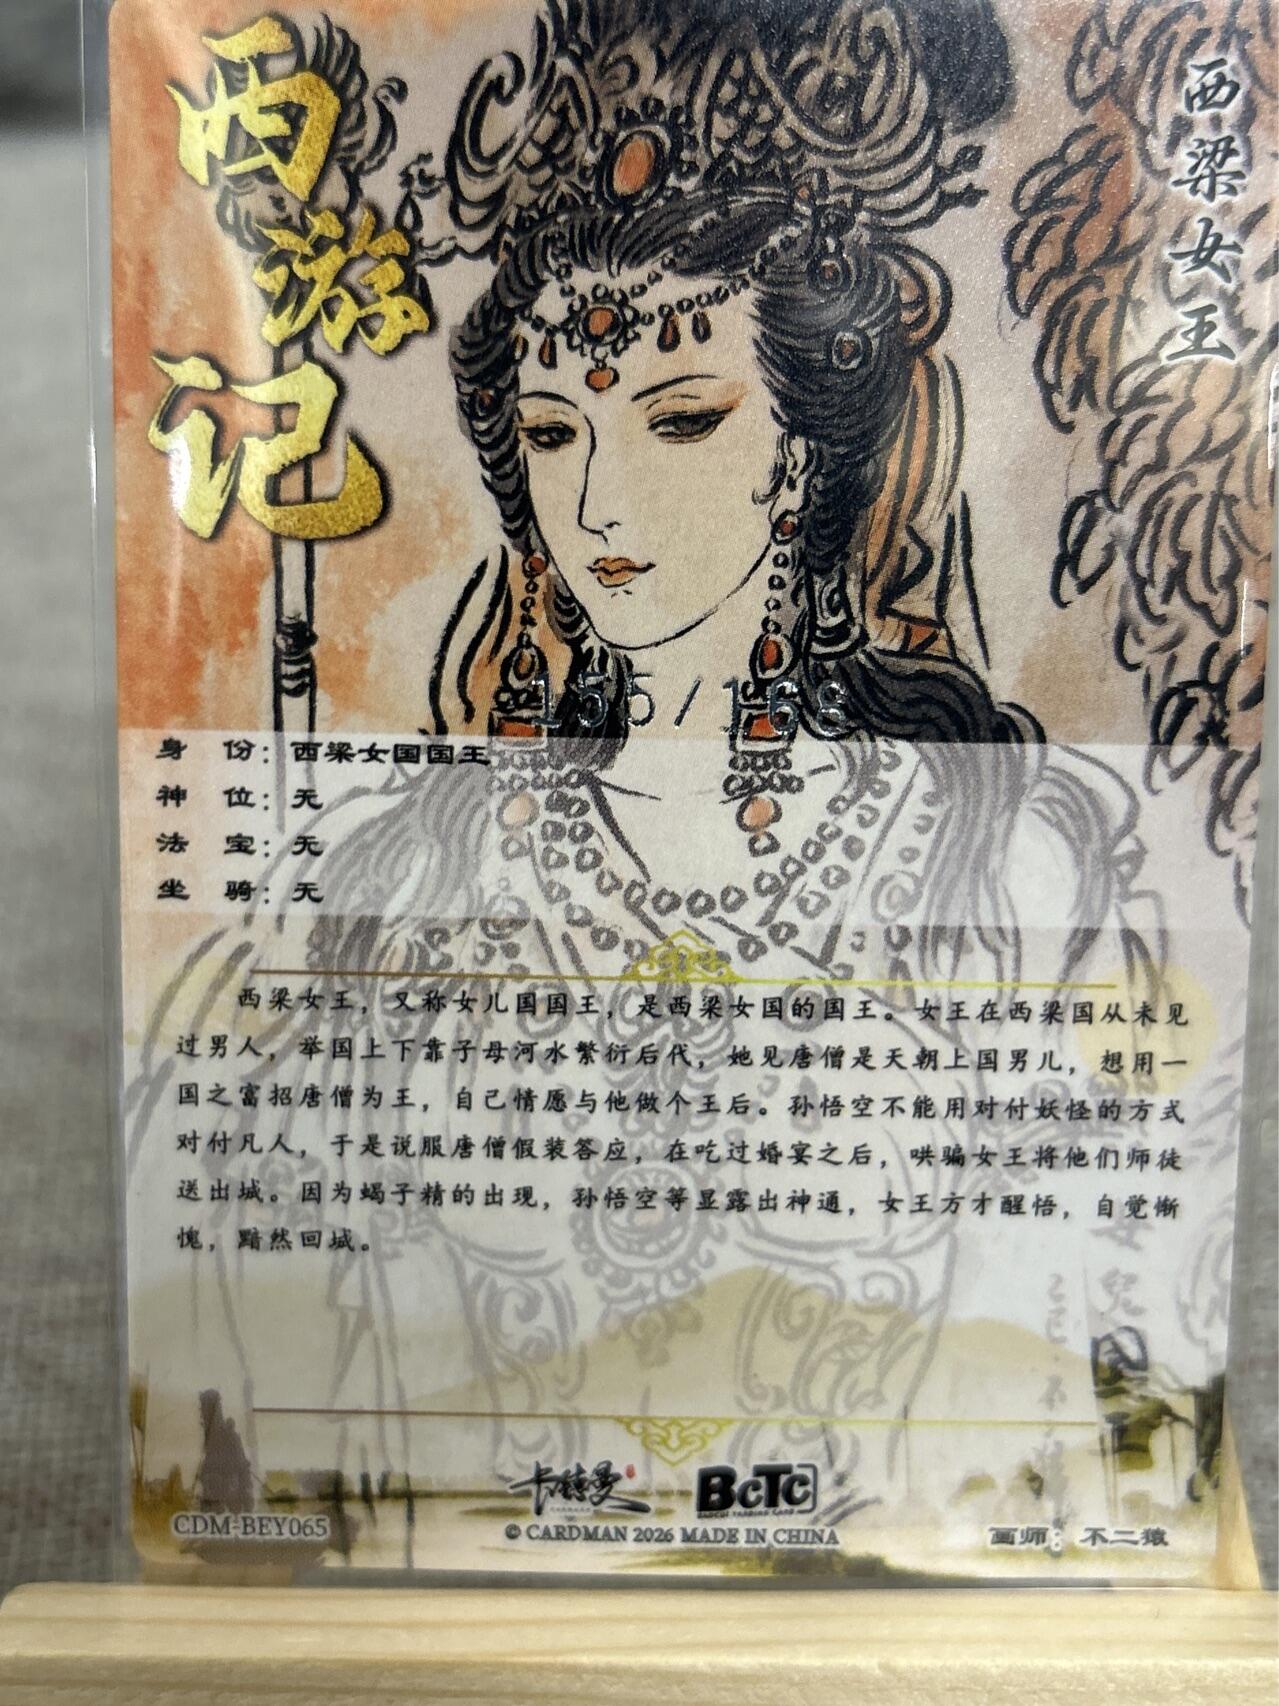 西游记
西梁女王
155/168
身 份：西梁女国国王
神 位：无
法 宝：无
坐 骑：无
西梁女王，又称女儿国国王，是西梁女国的国王。女王在西梁国从未见
过男人，举国上下靠子母河水繁衍后代，她见唐僧是天朝上国男儿，想用一
国之富招唐僧为王，自己情愿与他做个王后。孙悟空不能用对付妖怪的方式
对付凡人，于是说服唐僧假装答应，在吃过婚宴之后，哄骗女王将他们师徒
送出城。因为蝎子精的出现，孙悟空等显露出神通，女王方才醒悟，自觉惭
愧，黯然回城。
兒国王
卡特曼
BcTc
CDM-BEY065
© CARDMAN 2026 MADE IN CHINA
画师：不二猿